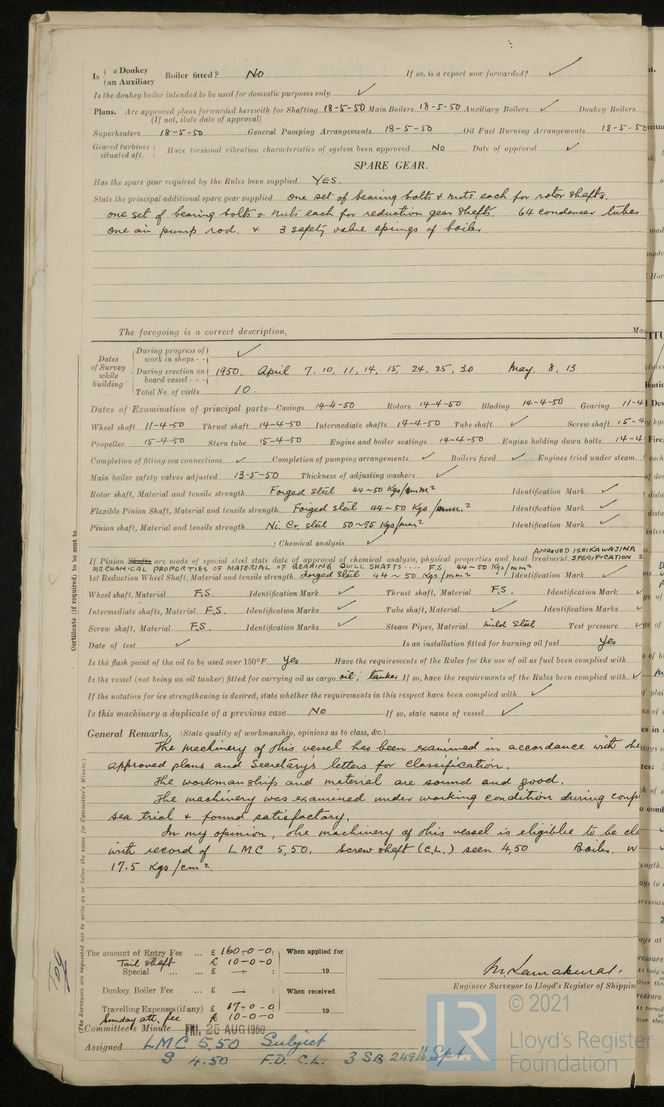 Is { a Donkey / an Auxiliary } Boiler fitted? No If so, is a report now forwarded? ✓
Is the donkey boiler intended to be used for domestic purposes only ✓
Plans. Are approved plans forwarded herewith for Shafting 18-5-50 Main Boilers 18-5-50 Auxiliary Boilers ✓ Donkey Boilers
(If not, state date of approval)
Superheaters 18-5-50 General Pumping Arrangements 18-5-50 Oil Fuel Burning Arrangements 18-5-50
Geared turbines situated aft. } Have torsional vibration characteristics of system been approved No Date of approval ✓
SPARE GEAR.
Has the spare gear required by the Rules been supplied YES.
State the principal additional spare gear supplied one set of bearing bolts & nuts each for rotor shafts.
one set of bearing bolts & nuts each for reduction gear shafts. 64 condenser tubes
one air pump rod. & 3 safety valve springs of boiler.
The foregoing is a correct description,
Dates of Survey while building
During progress of work in shops - - ✓
During erection on board vessel - - - 1950. April 7. 10, 11, 14, 15, 24, 25, 30 May. 8, 13
Total No. of visits 10.
Dates of Examination of principal parts—Casings 14-4-50 Rotors 14-4-50 Blading 14-4-50 Gearing 11-4
Wheel shaft 11-4-50 Thrust shaft 14-4-50 Intermediate shafts 14-4-50 Tube shaft ✓ Screw shaft 15-4
Propeller 15-4-50 Stern tube 15-4-50 Engine and boiler seatings 14-4-50 Engine holding down bolts 14-4
Completion of fitting sea connections ✓ Completion of pumping arrangements ✓ Boilers fixed ✓ Engines tried under steam
Main boiler safety valves adjusted 13-5-50 Thickness of adjusting washers ✓
Rotor shaft, Material and tensile strength Forged Steel 44~50 Kgs/mm² Identification Mark ✓
Flexible Pinion Shaft, Material and tensile strength Forged Steel 44~50 Kgs/mm.² Identification Mark ✓
Pinion shaft, Material and tensile strength Ni. Cr. Steel 50~75 Kgs/mm² Identification Mark ✓
; Chemical analysis ✓
APPROVED ISHIKAWAJIMA
If Pinion Shafts are made of special steel state date of approval of chemical analysis, physical properties and heat treatment SPECIFICATION
MECHANICAL PROPERTIES OF MATERIAL OF GEARING QUILL SHAFTS .... F.S. 44~50 Kgs/mm²
1st Reduction Wheel Shaft, Material and tensile strength forged Steel 44~50 Kgs/mm² Identification Mark ✓
Wheel shaft, Material F.S. Identification Mark ✓ Thrust shaft, Material F.S. Identification Mark ✓
Intermediate shafts, Material F.S. Identification Marks ✓ Tube shaft, Material ✓ Identification Marks ✓
Screw shaft, Material F.S. Identification Marks ✓ Steam Pipes, Material Mild Steel Test pressure
Date of test ✓ Is an installation fitted for burning oil fuel Yes
Is the flash point of the oil to be used over 150°F Yes Have the requirements of the Rules for the use of oil as fuel been complied with
Is the vessel (not being an oil tanker) fitted for carrying oil as cargo oil tanker If so, have the requirements of the Rules been complied with ✓
If the notation for ice strengthening is desired, state whether the requirements in this respect have been complied with ✓
Is this machinery a duplicate of a previous case No If so, state name of vessel ✓
General Remarks, (State quality of workmanship, opinions as to class, &c.)
The machinery of this vessel has been examined in accordance with the
approved plans and Secretary's letters for classification.
The workmanship and material are sound and good.
The machinery was examined under working condition during
sea trial & found satisfactory.
In my opinion, the machinery of this vessel is eligible to be
with record of LMC 5,50, Screw shaft (C.L.) seen 4,50 Boiler. w
17.5 Kgs/cm².
Certificate (if required) to be sent to
(The Surveyors are requested not to write on or below the space for Committee's Minute.)
The amount of Entry Fee ... £ 160-0-0 : When applied for
Tail shaft £ 10-0-0
Special ... ... £ — : 19
Donkey Boiler Fee ... £ — : When received
Travelling Expenses (if any) £ 17-0-0 19
Sunday att. fee £ 10-0-0
Engineer Surveyor to Lloyd's Register of Shipping
Committee's Minute FRI. 25 AUG 1950
Assigned LMC 5,50 Subject
S 4.50 F.D. C.L. 3 SB 249 lb Spt
LR
© 2021
Lloyd's Register
Foundation